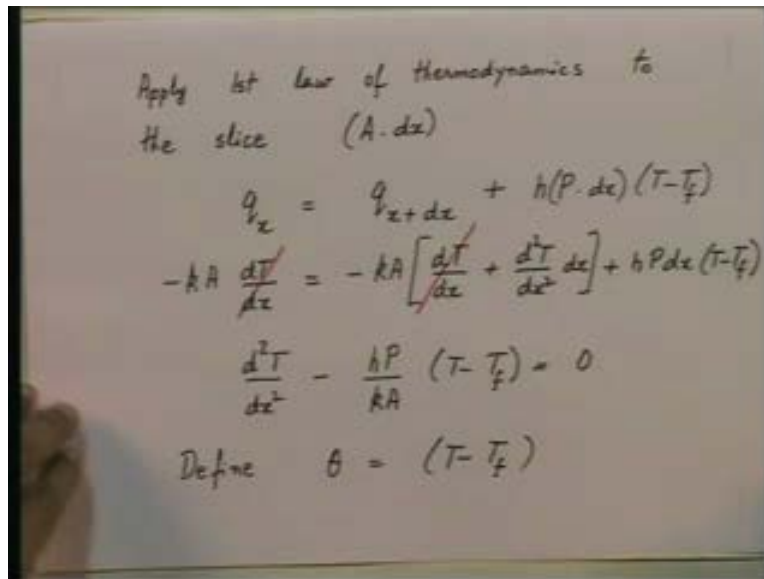 Apply 1st law of thermodynamics to
the slice (A. dx)
q_x = q_{x+dx} + h(P. dx) (T - T_f)
-kA dT/dx = -kA [dT/dx + d²T/dx² dx] + hPdx (T - T_f)
d²T/dx² - hP/kA (T - T_f) = 0
Define θ = (T - T_f)